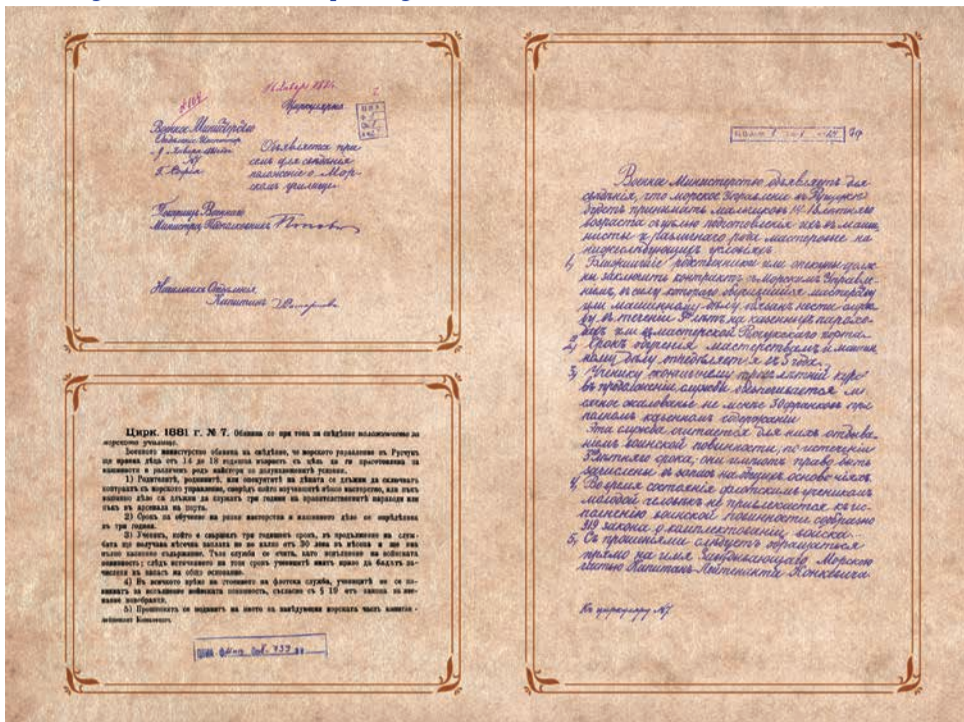 Циркулярно
Военное Министерство
Г. София
Объявляется при
семъ для сведения
положение о Мор-
скомъ училище.
Товарищъ Военного
Министра, Подполковникъ Попов
Началникъ Отделения
Капитанъ
Цирк. 1881 г. № 7. Обявява се при това за свѣдѣние положението за
морското училище.
Военното министерство обявява за свѣдѣние, че морското управление въ Русчукъ
ще приема дѣца отъ 14 до 18 годишна възрасть съ цѣль да ги приготовлява за
машинисти и различенъ родъ майстори на долуизложенитѣ условия.
1) Родителитѣ, роднинитѣ, или опекунитѣ на дѣцата се длъжни да сключватъ
контрактъ съ морското управление, споредъ който изучившитѣ нѣкое мастерство, или пъкъ
машинно дѣло са длъжни да служатъ три години на правителственнитѣ параходи или
пъкъ въ арсенала на порта.
2) Срокъ за обучение на разни мастерства и машинното дѣло се опредѣлява
въ три години.
3) Ученикъ, който е свършилъ три годишенъ срокъ, въ продължение на служ-
бата ще получава мѣсечна заплата не по малко отъ 30 лева въ мѣсеца и ще има
пълно казенно съдържание. Тъзи служба се счита, като изпълнение на войнската
повинность; слѣдъ истичението на този срокъ ученицитѣ иматъ право да бѫдатъ за-
числени въ запасъ на общо основание.
4) Въ всичкото врѣме на стоението на флотска служба, ученицитѣ не се по-
викватъ за исполнение войнската повинность, съгласно съ § 19 отъ закона за взе-
мание новобранци.
5) Прошенията се подаватъ на името на завѣдующия морската часть капитан-
лейтенантъ Конкевичъ.
Военное Министерство объявляетъ для
сведения, что морское Управление въ Рущукѣ
будетъ принимать мальчиковъ 14-18 летняго
возраста съ целью подготовления ихъ въ маши-
нисты и различнаго рода мастеровые на
нижеследующихъ условияхъ
1) Ближайшие родственники или опекуны долж-
ны заключить контрактъ съ Морскимъ Управле-
ниемъ, въ силу котораго обучившийся мастерству
или машинному делу обязанъ нести служ-
бу въ течении 3 летъ на казенныхъ парохо-
дахъ или въ мастерской Рущукскаго порта.
2) Срокъ обучения мастерствамъ и машин-
ному делу определяется въ 3 года.
3) Ученику окончившему трехлетний курс
въ продолжение службы обезпечивается ме-
сячное жалованье не менее 30 франковъ при
полномъ казенномъ содержании
Эта служба считается для нихъ отбыва-
ниемъ воинской повинности, по истечении
3 летняго срока, они имеютъ право быть
зачислены въ запасъ на общихъ основанияхъ.
4) Во время состояния флотскимъ учеником
молодой человекъ не привлекается къ ис-
полнению воинской повинности сообразно
§19 закона о комплектовании войска.
5) Съ прошениями следуетъ обращаться
прямо на имя Заведывающаго Морскою
частью Капитанъ-Лейтенанта Конкевича
Къ циркуляру №7